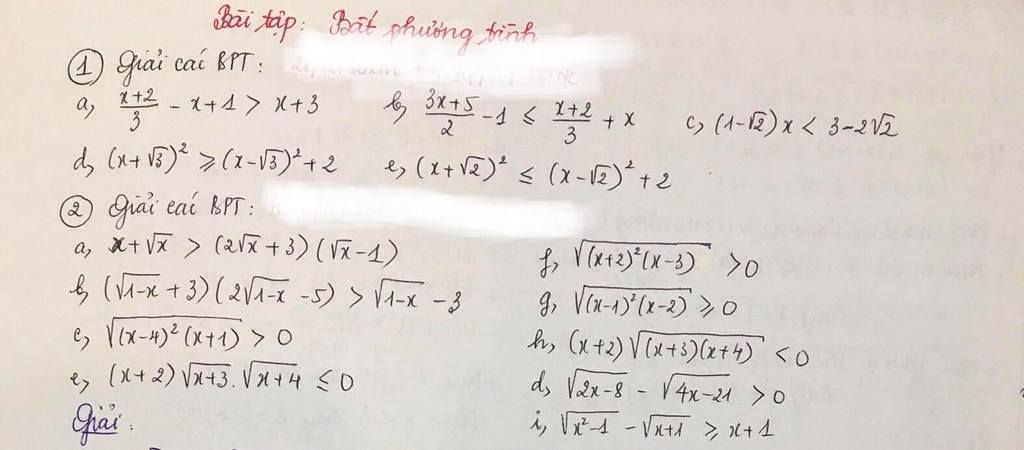 Bài tập: Bất phương trình
① Giải các BPT:
a, (x+2)/3 - x + 1 > x + 3    b, (3x+5)/2 - 1 ≤ (x+2)/3 + x    c, (1-√2)x < 3 - 2√2
d, (x+√3)² ≥ (x-√3)² + 2    e, (x+√2)² ≤ (x-√2)² + 2
② Giải các BPT:
a, x + √x > (2√x + 3)(√x - 1)
b, (√(1-x) + 3)(2√(1-x) - 5) > √(1-x) - 3
c, √((x-4)²(x+1)) > 0
e, (x+2)√(x+3).√(x+4) ≤ 0
f, √((x+2)²(x-3)) > 0
g, √((x-1)²(x-2)) ≥ 0
h, (x+2)√((x+3)(x+4)) < 0
d, √(2x-8) - √(4x-21) > 0
i, √(x²-1) - √(x+1) ≥ x + 1
Giải: